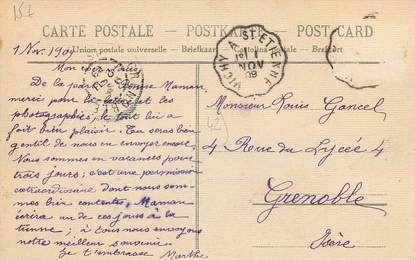 151
CARTE POSTALE - POSTKARTE - POST CARD
Union postale universelle - Briefkaart - Cartolina postale - Brefkort
VICHY A ST ETIENNE
1 NOV 09
1 Nov. 190
Mon cher Louis
De la part de Bonne Maman,
merci pour la et les
photographies; le tout lui a
fait bien plaisir. Tu seras bien
gentil de nous en envoyer encore.
Nous sommes en vacances pour
trois jours; c'est une permission
extraordinaire dont nous som
mes bien contents. Maman
écrira un de ces jours à la
tienne; à tous nous envoyons
notre meilleur souvenir.
Je t'embrasse Marthe
Monsieur Louis Gancel
4 Rue du Lycée 4
Grenoble
Isère
42